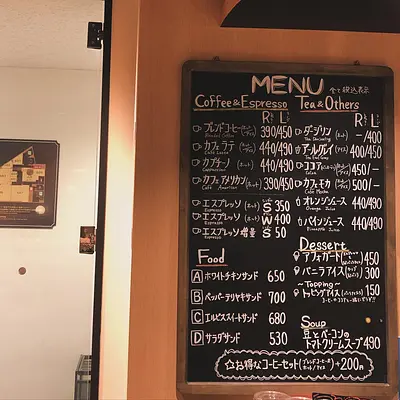 MENU 全て税込表示
Coffee&Espresso
R L
ブレンドコーヒー 390/450
カフェラテ (ホット/アイス) 440/490
Cafe Latte
カプチーノ (ホット) 440/490
Cappuccino
カフェアメリカン (ホット) 390/450
Cafe American
エスプレッソ S 350
Espresso
エスプレッソ (ホット) W 400
Espresso
エスプレッソ増量 S 50
Espresso
Food
A ホワイトチキンサンド 650
B ペッパーテリヤキサンド 700
C エルビススイートサンド 680
D サラダサンド 530
Tea&Others
R L
ダージリン (ホット) —/400
Tea Darjeeling
アールグレイ (ホット/アイス) 400/450
Tea Earl Grey
ココア 450/—
Cocoa
カフェモカ (ホット) 500/—
Cafe Mocha
オレンジジュース 440/490
Orange Juice
パインジュース 440/490
Pineapple Juice
Dessert
アフォガード 450
バニラアイス 300
~Topping~
トッピングアイス 150
Soup
豆とベーコンの
トマトクリームスープ 490
☆お得なコーヒーセット(ブレンドコーヒー ホット/アイス) +200円